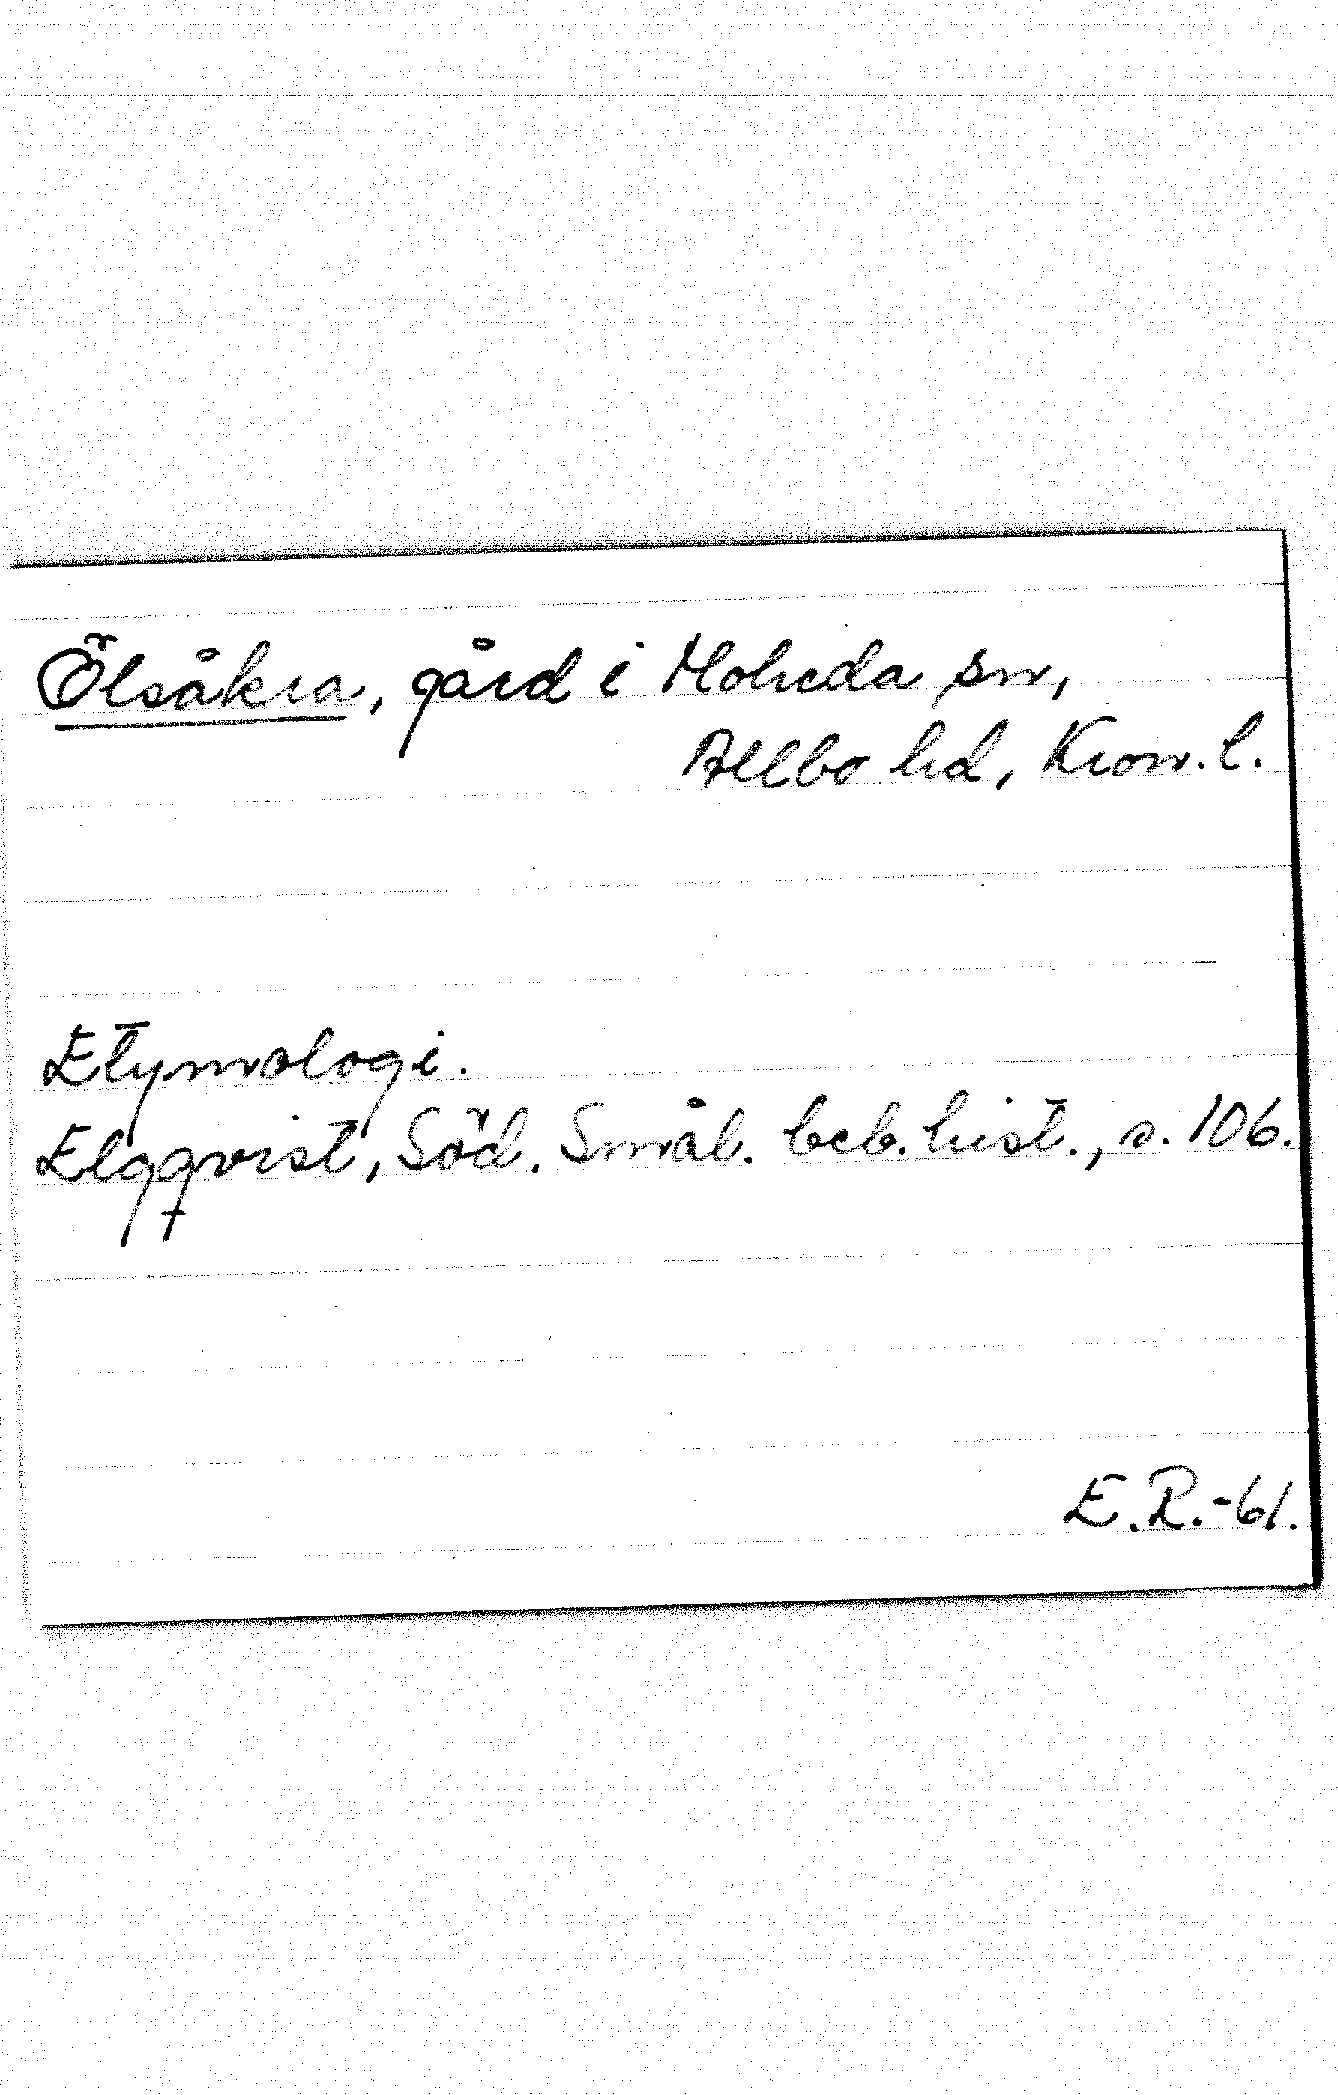 Ölsåkra, gård i Moheda sn,
Allbo hd, Kron. l.
Etymologi.
Elgqvist, Söd. Smål. beb. hist., s. 106.
E.R.-61.